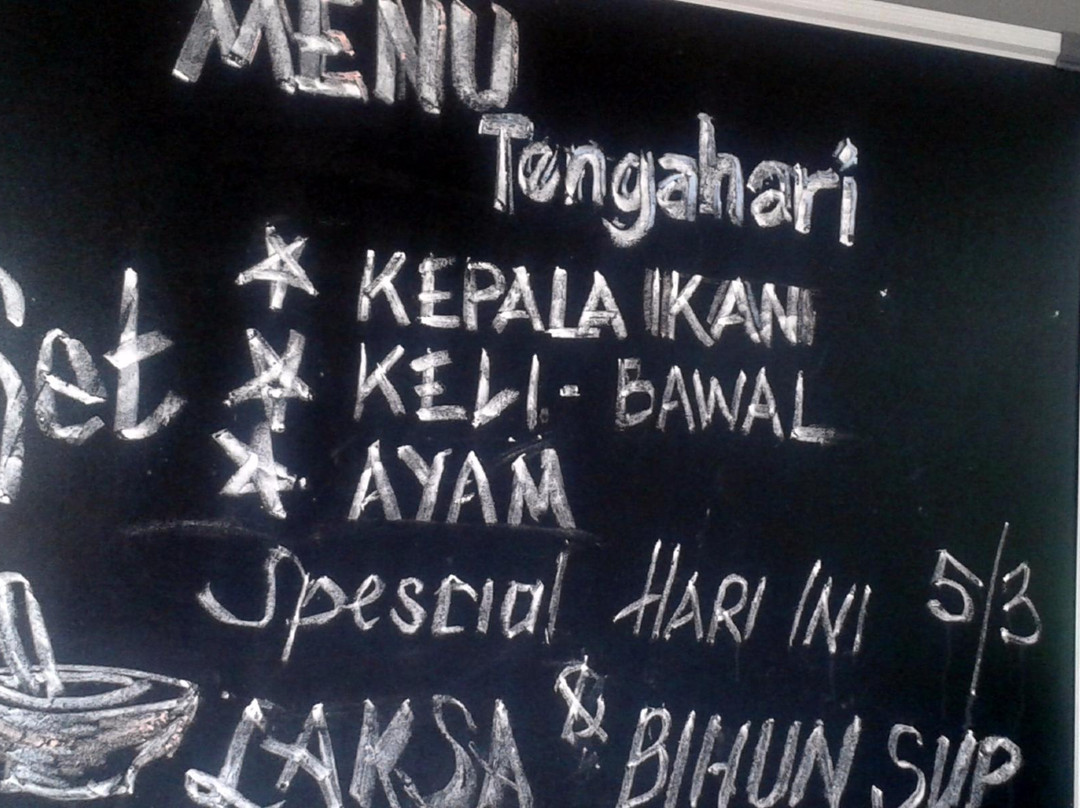 MENU
Tengahari
Set
KEPALA IKAN
KELI - BAWAL
AYAM
Spescial HARI INI 5/3
LAKSA & BIHUN SUP